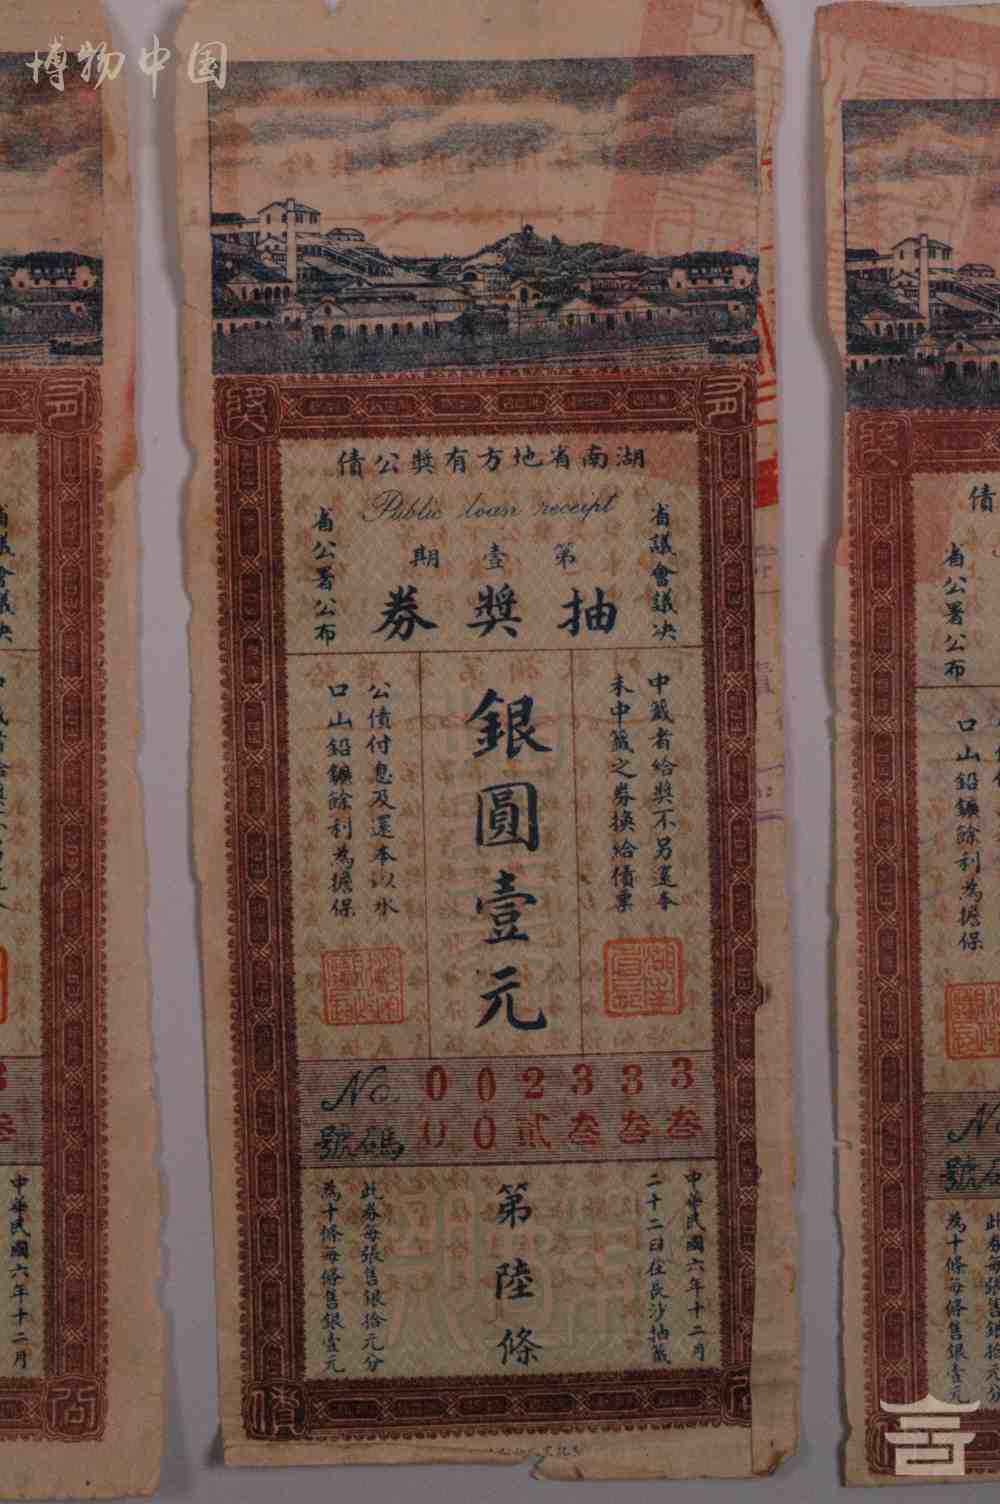 博物中国
湖南省地方有獎公債
Public loan receipt
省議會議决
第壹期
省公署公布
抽獎券
中籤者給獎不另還本
未中籤之券換給債票
銀圓壹元
公債付息及還本以水
口山鉛鑛餘利為擔保
No. 002333
號碼 00貳叁叁叁
中華民國六年十二月
二十二日在長沙抽籤
第陸條
此券每張售銀拾元分
為十條每條售銀壹元
省公署公布
口山鉛鑛餘利為擔保
為十條每條售銀壹元
中華民國六年十二月